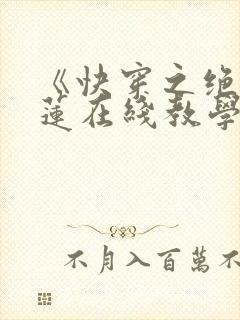 《快穿之绝
蓮在綫教學
不月入百萬不